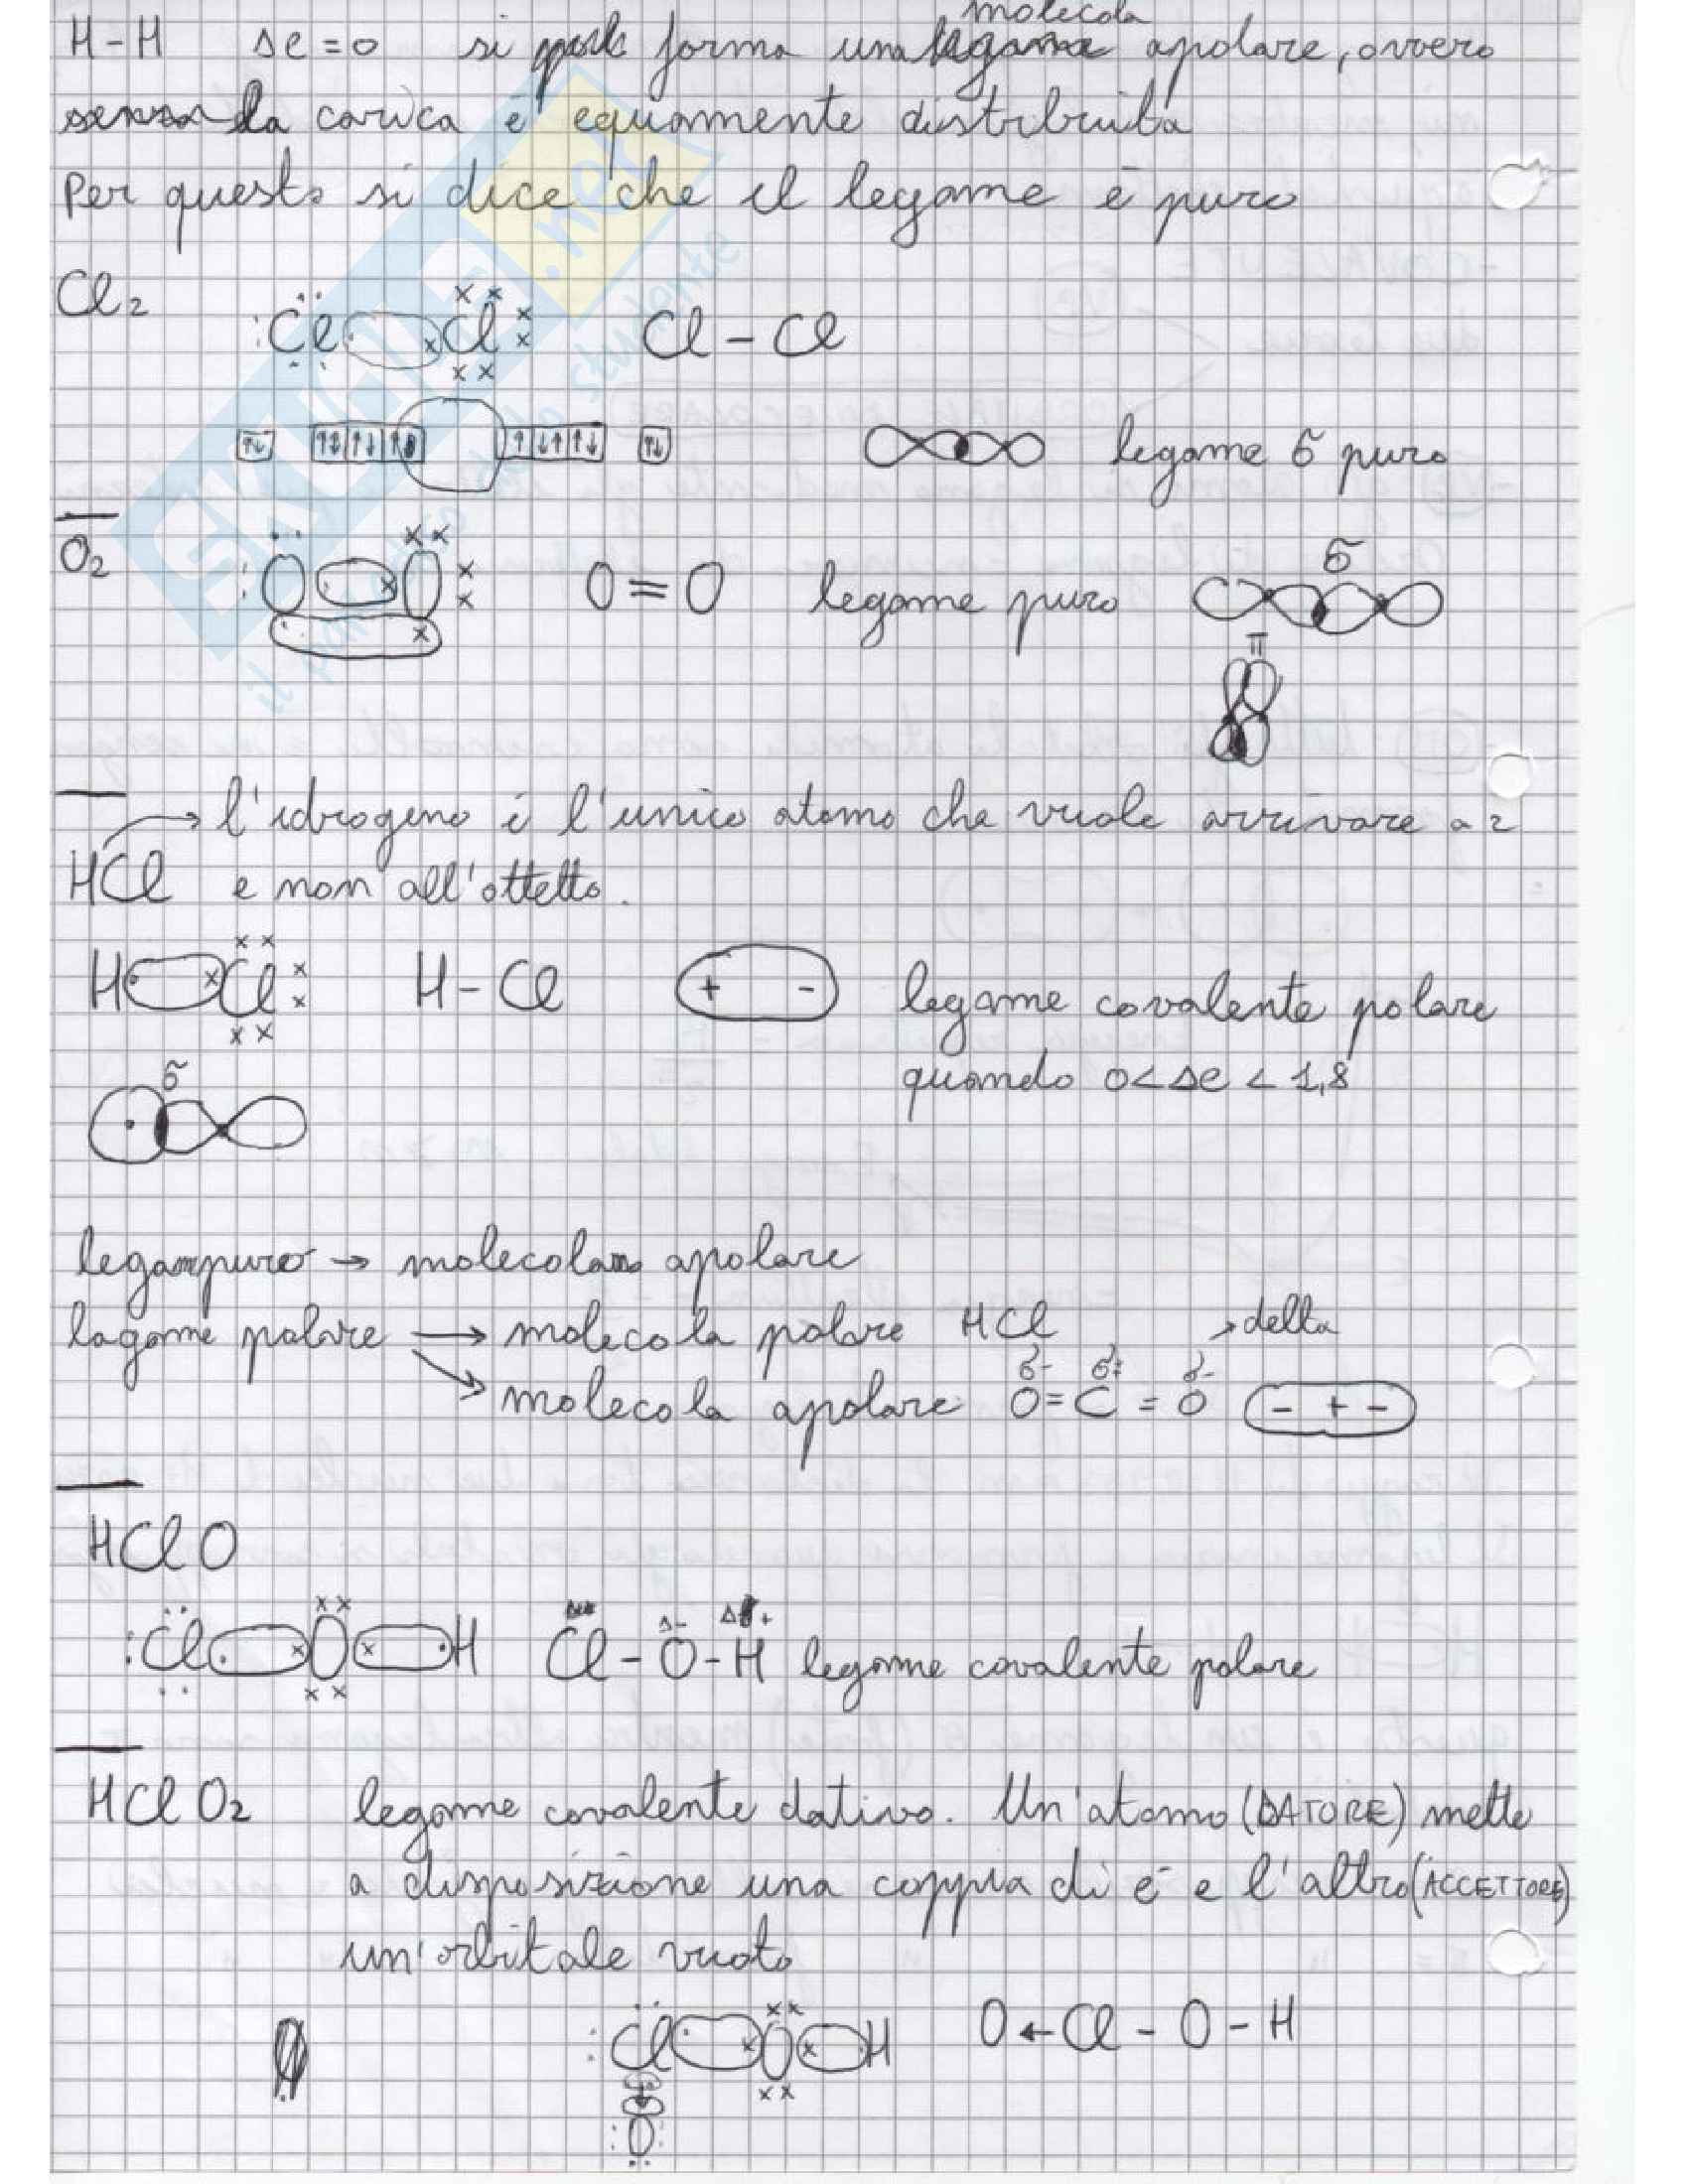 molecola
H-H Δe=0 si forma una legame apolare, ovvero
senza la carica è equamente distribuita
Per questo si dice che il legame è puro
Cl2 Cl Cl Cl-Cl
legame σ puro
O2 O O O=O legame puro σ
π
l'idrogeno è l'unico atomo che vuole arrivare a 2
HCl e non all'ottetto.
H Cl H-Cl + - legame covalente polare
quando 0<Δe<1,8
σ
legame puro → molecola apolare
legame polare → molecola polare HCl → delta
δ- δ+ δ-
molecola apolare O=C=O - + -
HClO
Δ- Δ+
Cl O H Cl-O-H legame covalente polare
HClO2 legame covalente dativo. Un'atomo (DATORE) mette
a disposizione una coppia di e- e l'altro (ACCETTORE)
un'orbitale vuoto
Cl O H O←Cl-O-H
O
SKUOLA.net